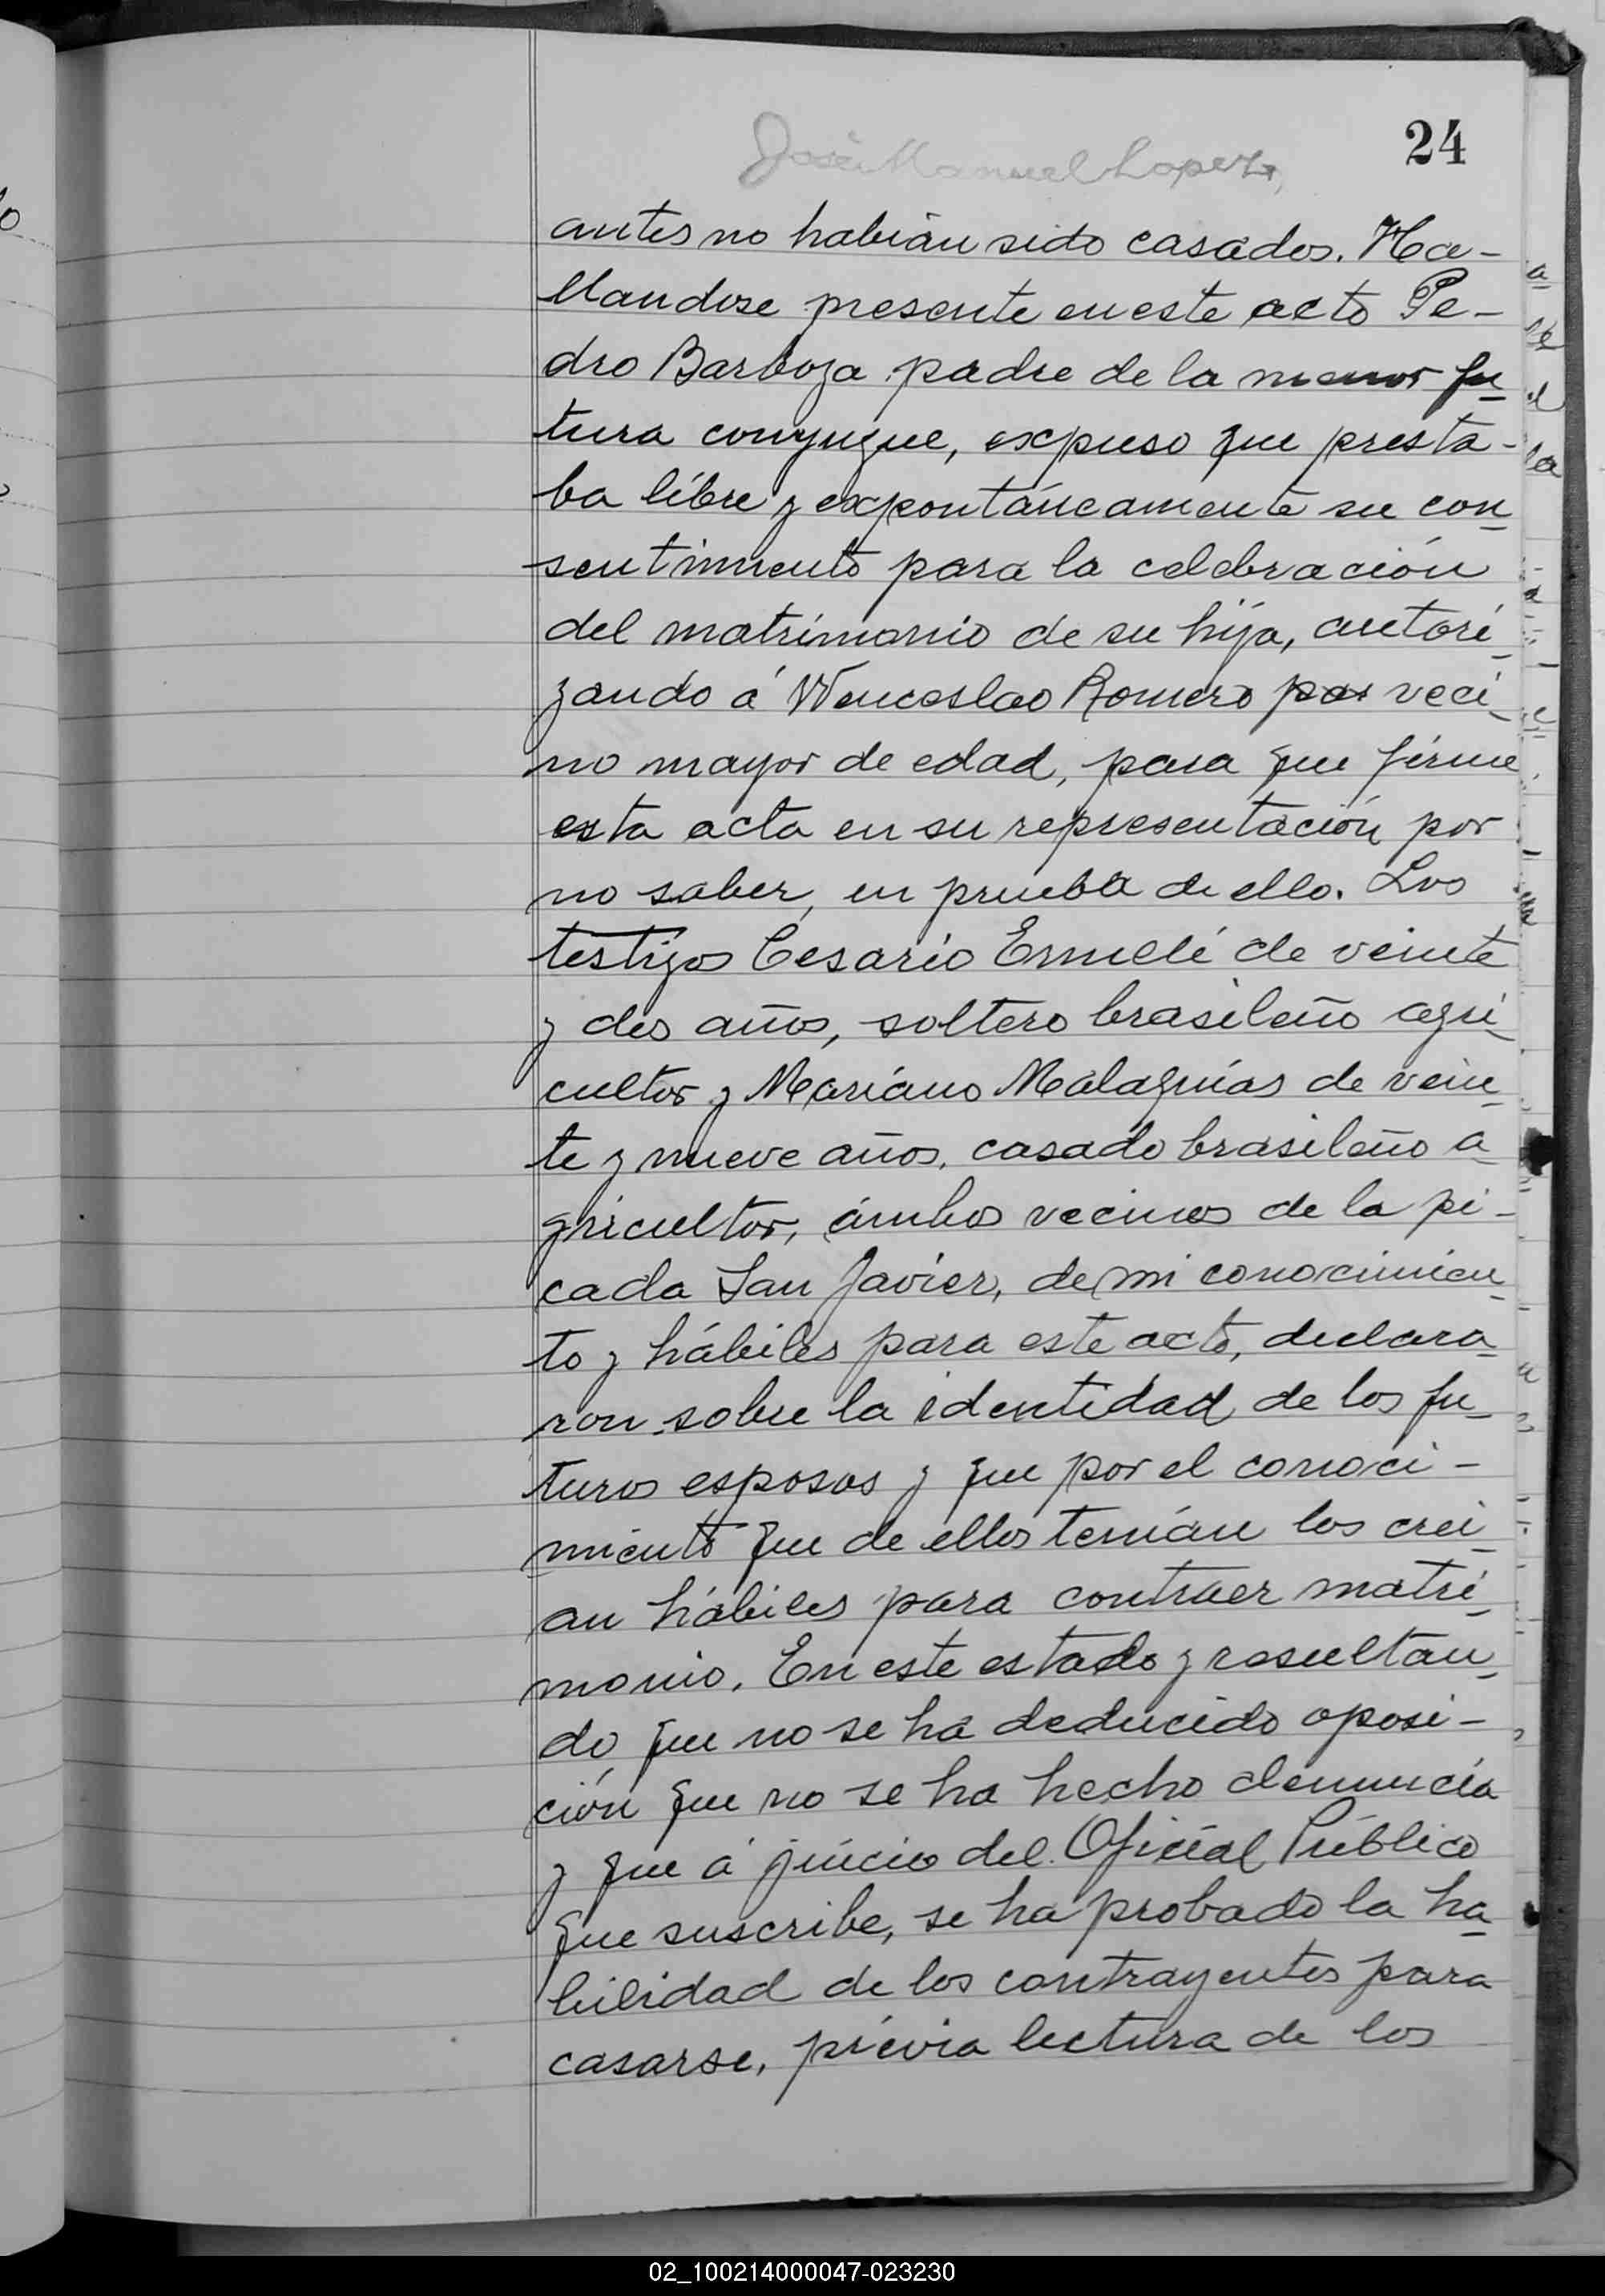 24
José Manuel Lopez
antes no habían sido casados. Ha-
llandose presente en este acto Pe-
dro Barboza padre de la menor fu
tura conyugue, expuso que presta-
ba líbre y expontáneamente su con
sentimiento para la celebración
del matrimonio de su hija, autori
zando á Wenceslao Romero por veci
no mayor de edad, para que firme
esta acta en su representación por
no saber, en prueba de ello. Los
testigos Cesario Ernelé de veinte
y dos años, soltero brasileño agri
cultor y Mariano Malaquías de vein
te y nueve años, casado brasileño a
gricultor, ámbos vecinos de la pi-
cada San Javier, de mi conocimien
to y hábiles para este acto, declara
ron sobre la identidad de los fu
turos esposos y que por el conoci-
miento que de ellos tenían los crei
an hábiles para contraer matri
monio. En este estado y resultan
do que no se há deducido oposi-
ción que no se ha hecho denuncia
y que á juicio del Oficial Público
que suscribe, se ha probado la ha
bilidad de los contrayentes para
casarse, prévia lectura de los
02_100214000047-023230